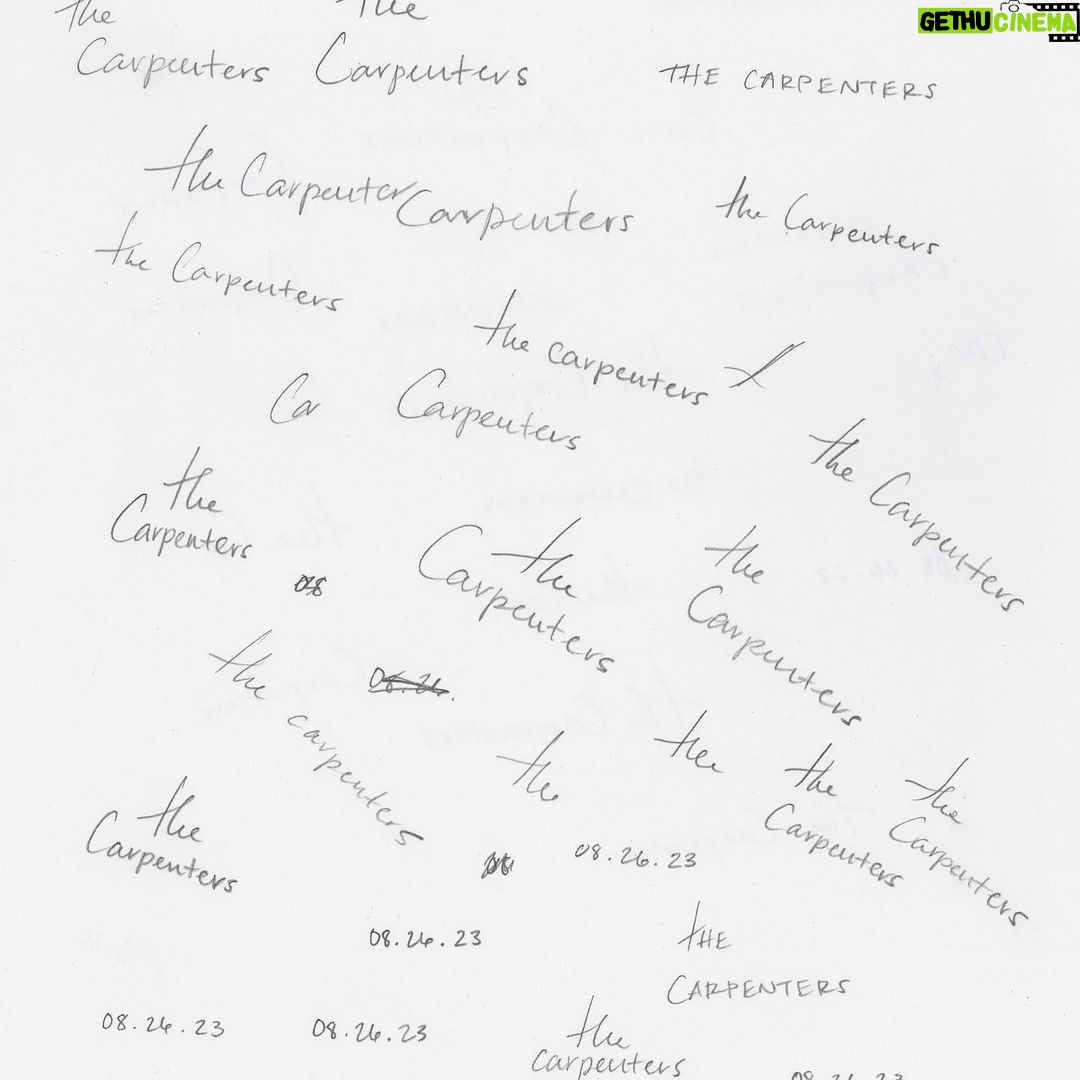 the
the
GETHUCINEMA
Carpenters
Carpenters
THE CARPENTERS
the Carpenter
Carpenters
the Carpenters
the Carpenters
the carpenters
Car
Carpenters
the Carpenters
the
Carpenters
the
Carpenters
the
Carpenters
08
the carpenters
08.26.
the
the
the
Carpenters
the
Carpenters
the
Carpenters
08
08.26.23
08.26.23
THE
CARPENTERS
08.26.23
08.26.23
the
Carpenters
08.26.23